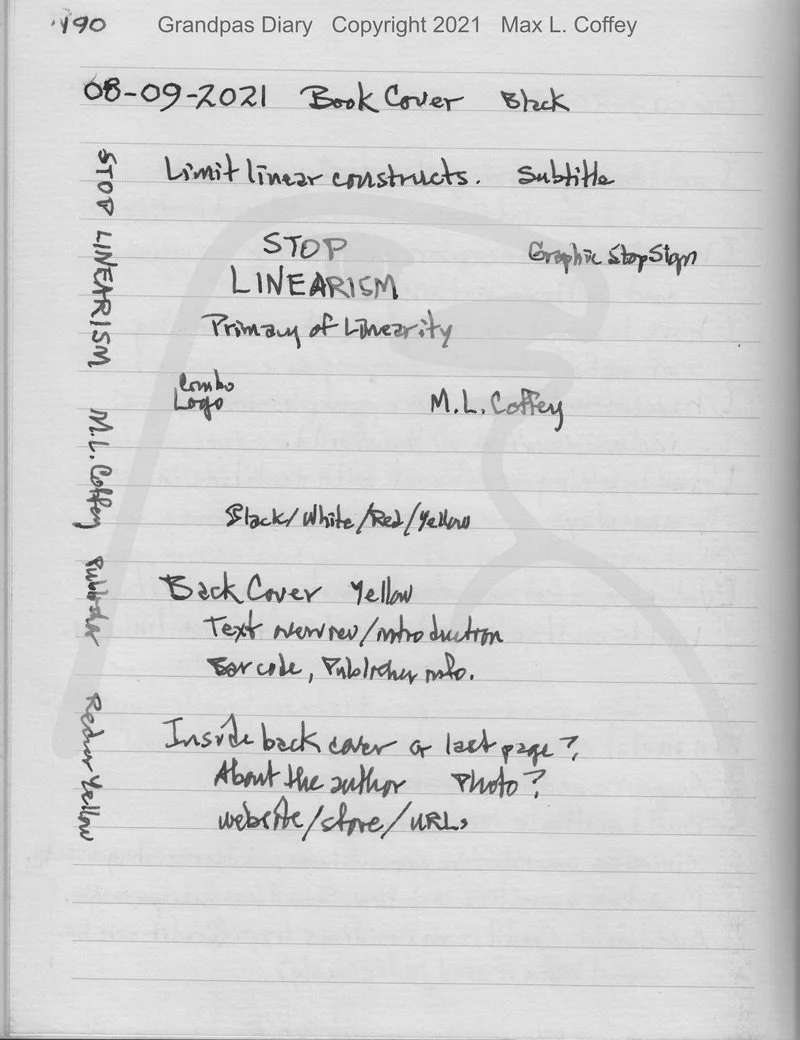 190 Grandpas Diary Copyright 2021 Max L. Coffey
08-09-2021 Book Cover Black
Limit linear constructs. Subtitle
STOP Graphic Stop Sign
LINEARISM
Primacy of Linearity
Combo
Logo M.L. Coffey
Black/White/Red/Yellow
Back Cover Yellow
Text overview/introduction
Bar code, Publisher info.
Inside back cover or last page?
About the author Photo?
website/store/URLs
STOP LINEARISM M.L. Coffey Publisher Red or Yellow